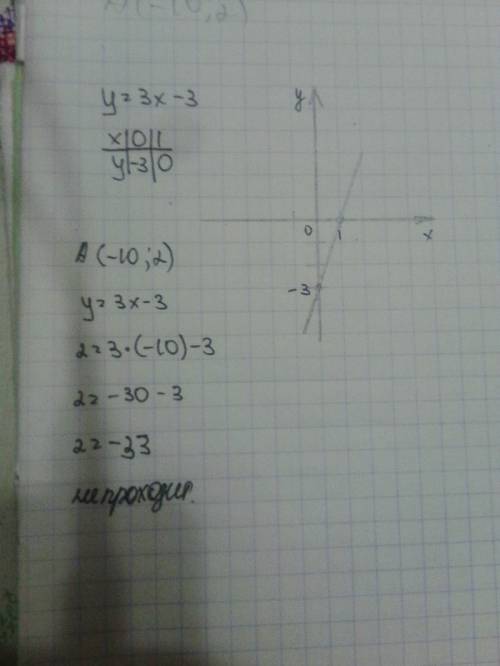 A(-10;2)
y = 3x - 3
x|0|1
y|-3|0
A (-10; 2)
y = 3x - 3
2 = 3 · (-10) - 3
2 = -30 - 3
2 = -33
не проходит.
y
0
1
x
-3